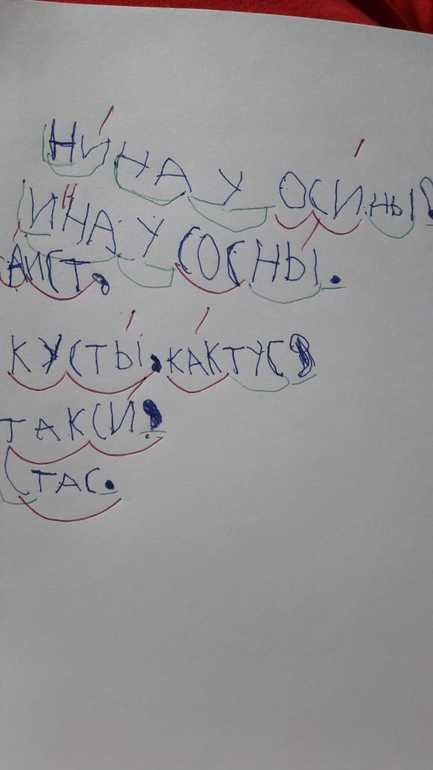 НИНА У ОСИНЫ,
ИННА У СОСНЫ.
АИСТ.
КУСТЫ, КАКТУС,
ТАКСИ,
СТАС.